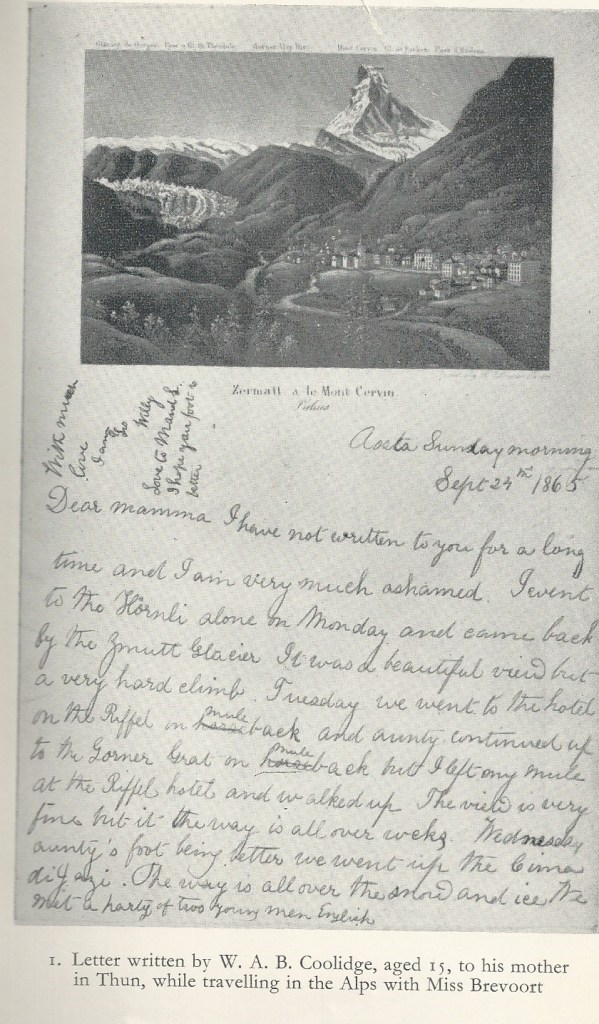 Zermatt & le Mont Cervin
Valais
With much
love
I am
Willy
Love to Maud L.
I hope your foot is
better
Aosta Sunday morning
Sept 24th 1865
Dear mamma I have not written to you for a long
time and I am very much ashamed. I went
to the Hörnli alone on Monday and came back
by the Zmutt Glacier It was a beautiful view but
a very hard climb. Tuesday we went to the hotel
on the Riffel on horse mule back and aunty continued up
to the Gorner Grat on horse mule back but I left my mule
at the Riffel hotel and walked up The view is very
fine but it the way is all over rocks. Wednesday
aunty's foot being better we went up the Cima
di Jazi. The way is all over the snow and ice We
met a party of two young men English
1. Letter written by W. A. B. Coolidge, aged 15, to his mother
in Thun, while travelling in the Alps with Miss Brevoort